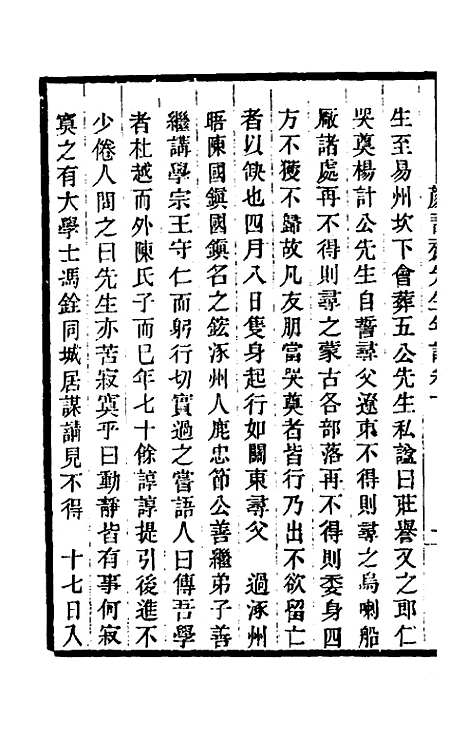 生至易州坎下會葬五公先生私諡曰莊譽又之郎仁
哭奠楊計公先生自誓尋父遼東不得則尋之烏喇船
厰諸處再不得則尋之蒙古各部落再不得則委身四
方不獲不歸故凡友朋當哭奠者皆行乃出不欲留亡
者以缺也四月八日隻身起行如關東尋父　過涿州
晤陳國鎭國鎭名之鋐涿州人鹿忠節公善繼弟子善
繼講學宗王守仁而躬行切實過之嘗語人曰傳吾學
者杜越而外陳氏子而已年七十餘諄諄提引後進不
少倦人問之曰先生亦苦寂寞乎曰動靜皆有事何寂
寞之有大學士馮銓同城居謀請見不得　十七日入